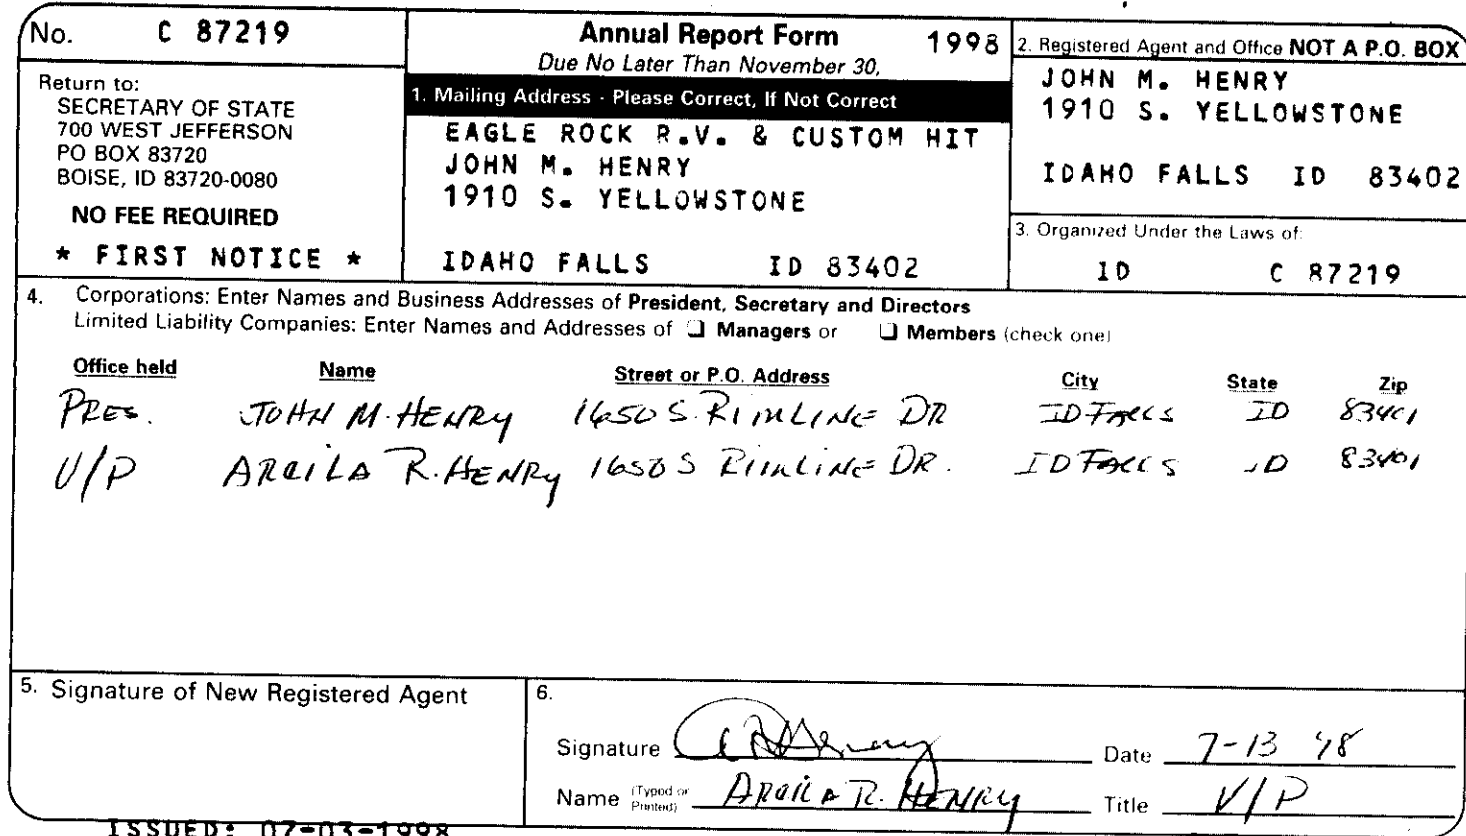 No. C 87219
Return to:
SECRETARY OF STATE
700 WEST JEFFERSON
PO BOX 83720
BOISE, ID 83720-0080
NO FEE REQUIRED
* FIRST NOTICE *
Annual Report Form 1998
Due No Later Than November 30,
1. Mailing Address - Please Correct, If Not Correct
EAGLE ROCK R.V. & CUSTOM HIT
JOHN M. HENRY
1910 S. YELLOWSTONE
IDAHO FALLS ID 83402
2. Registered Agent and Office NOT A P.O. BOX
JOHN M. HENRY
1910 S. YELLOWSTONE
IDAHO FALLS ID 83402
3. Organized Under the Laws of:
ID C 87219
4. Corporations: Enter Names and Business Addresses of President, Secretary and Directors
Limited Liability Companies: Enter Names and Addresses of ❑ Managers or ❑ Members (check one)
Office held Name Street or P.O. Address City State Zip
PRES. JOHN M. HENRY 1650 S. RIMLINE DR ID FALLS ID 83401
V/P R. HENRY 1650 S RIMLINE DR. ID FALLS ID 83401
5. Signature of New Registered Agent
6.
Signature Henry Date 7-13 98
Name (Typed or Printed) R. HENRY Title V/P
ISSUED: 07-03-1998